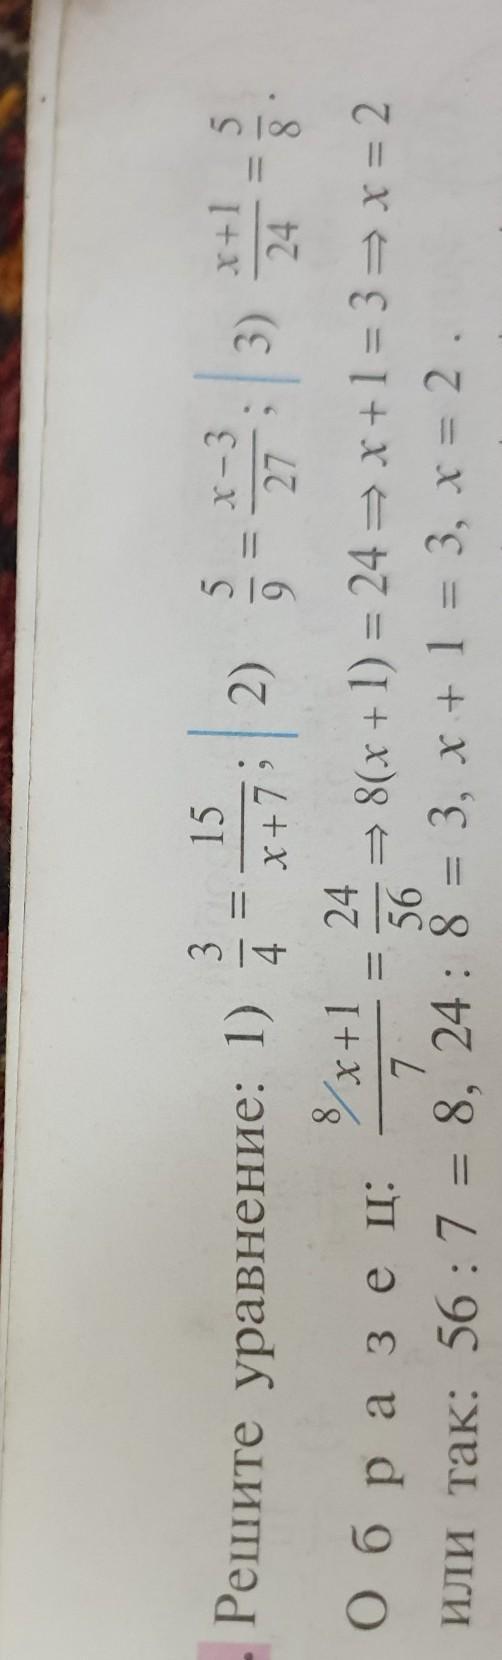 . Решите уравнение: 1) 3/4 = 15/(x+7); | 2) 5/9 = (x−3)/27; | 3) (x+1)/24 = 5/8.
О б р а з е ц: ⁸⁄(x+1)/7 = 24/56 ⇒ 8(x + 1) = 24 ⇒ x + 1 = 3 ⇒ x = 2
или так: 56 : 7 = 8, 24 : 8 = 3, x + 1 = 3, x = 2 .